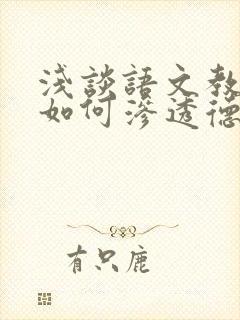 淺談語文教
如何滲透德
有只鹿